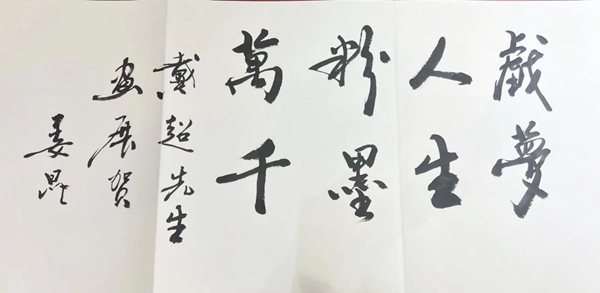 戯夢
人生
粉墨
萬千
戴超先生
画展贺
姜昆